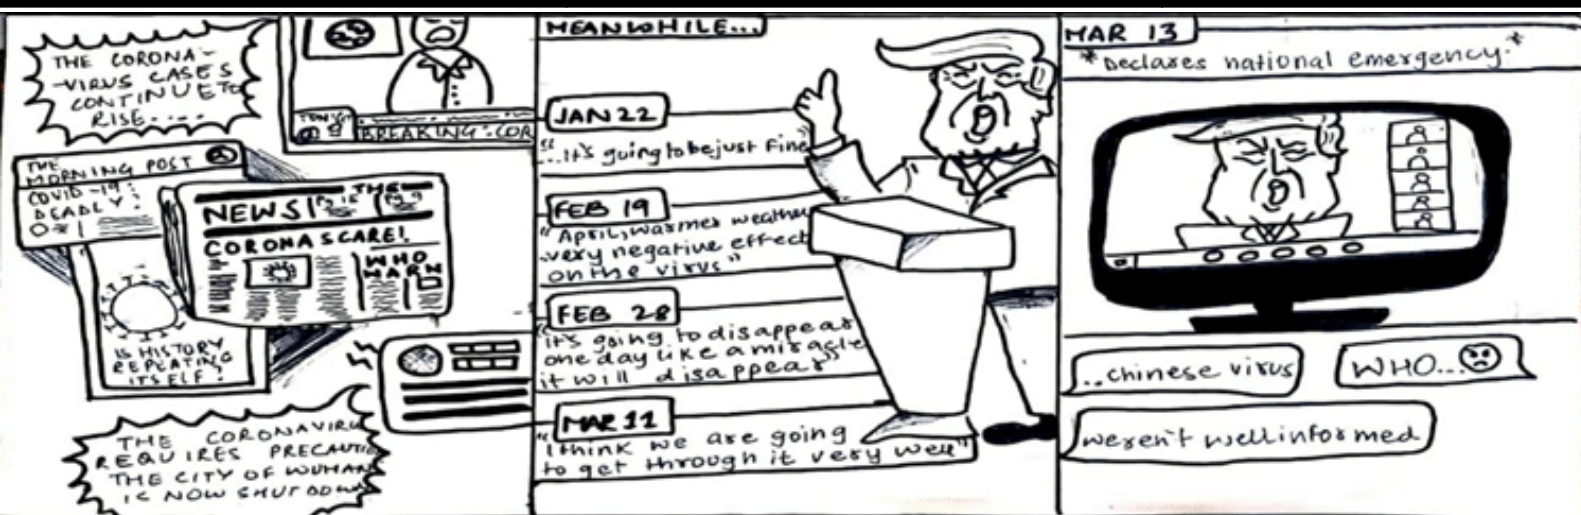 THE CORONA-
-VIRUS CASES
CONTINUE TO
RISE....
BREAKING: COR
THE
MORNING POST
COVID-19:
DEADLY!
NEWS!
THE
CORONA SCARE!
WHO
WARN
IS HISTORY
REPEATING
ITSELF?
THE CORONAVIRU
REQUIRES PRECAUTIO
THE CITY OF WUHAN
IS NOW SHUT DOWN
MEANWHILE...
JAN 22
"...it's going to be just fine"
FEB 19
"April, warmer weather
very negative effect
on the virus"
FEB 28
"it's going to disappear
one day like a miracle
it will disappear"
MAR 11
"I think we are going
to get through it very well"
MAR 13
*Declares national emergency.*
...chinese virus
WHO...
weren't well informed